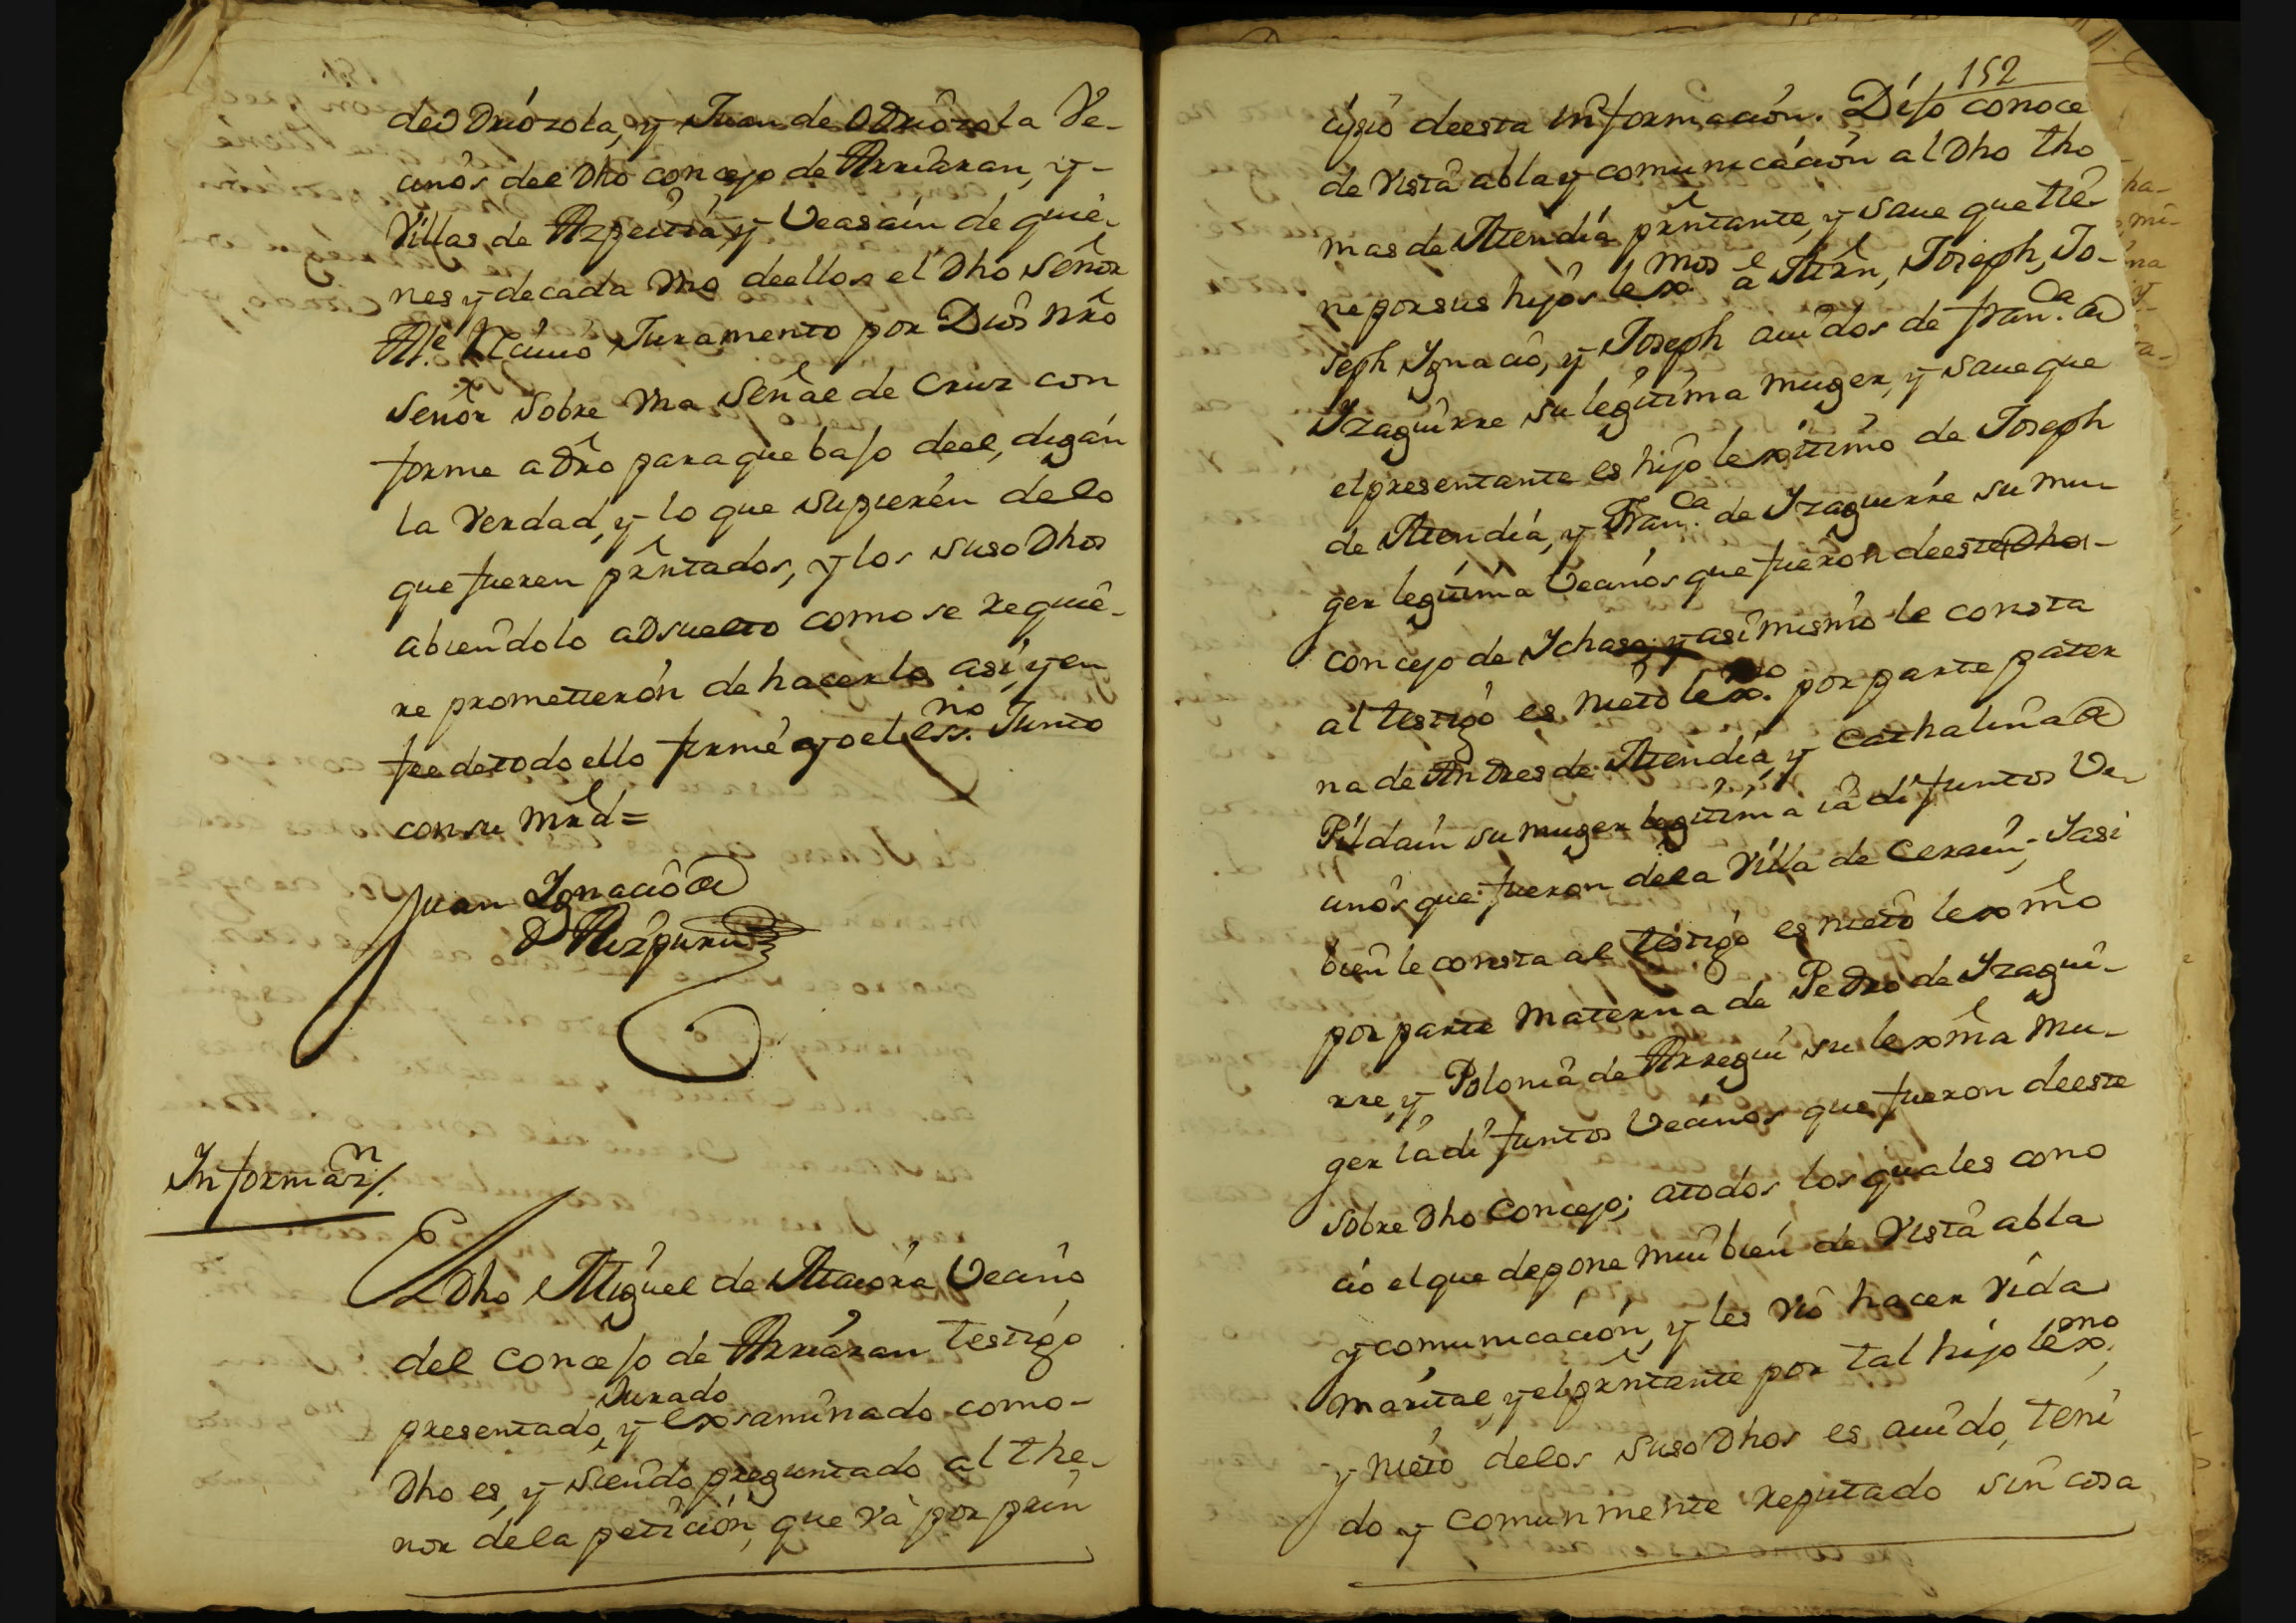 de Odriózola, y Juan de Odriózola Ve-
cinos del dho concejo de Arriaran, y -
Villas de Azpeitia, y Veasain de quie-
nes y de cada vno de ellos el dho Señor
Alc.e reciuió Juramento por Dios nro
Señor sobre vna Señal de Cruz con
forme a dro para que bajo de el, digan
la verdad, y lo que supieren de lo
que fueren prntados, y los suso dhos
abiendolo absuelto como se requie-
re prometieron de hacerlo así, y en
fee de todo ello firmé yo el ess.no Junto
con su mrd =
Juan Ignacio de
Aizpuru
Informaz.n
El dho Miguel de Vecino
del concejo de Arriaran testigo
presentado, Jurado y exsaminado como -
dho es, y siendo preguntado al the-
nor de la petición, que vá por prin
152
cipio de esta informacion. Dijo conoce
de vista abla y comunicación al dho tho
mas de Atendia prntante, y saue que tie-
ne por sus hijos lex.mos a Mrn, Joseph, Jo-
seph Ignacio, y Joseph auidos de Fran.ca de
Yzaguirre su legitima muger, y saue que
el presentante es hijo lexitimo de Joseph
de Atendia, y Fran.ca de Yzaguirre su mu-
ger legitima Vecinos que fueron de este dho -
concejo de Ychaso; y asi mismo le consta
al testigo es nieto lex.mo por parte pater
na de Andres de Atendia, y Cathalina de
Pildain su muger legitima ia difuntos Ve-
cinos que fueron de la Villa de Cerain; Y asi
bien le consta al testigo es nieto lexmo
por parte materna de Pedro de Yzagui-
rre, y Polonia de Arregui su lexma mu-
ger ia difuntos Vecinos que fueron de este
sobre dho Concejo; a todos los quales cono
ció el que depone mui bien de vista abla
y comunicación, y les vió hacer vida
marital, y el prntante por tal hijo lex.mo,
y nieto de los suso dhos es auido, teni
do y comunmente reputado sin cosa